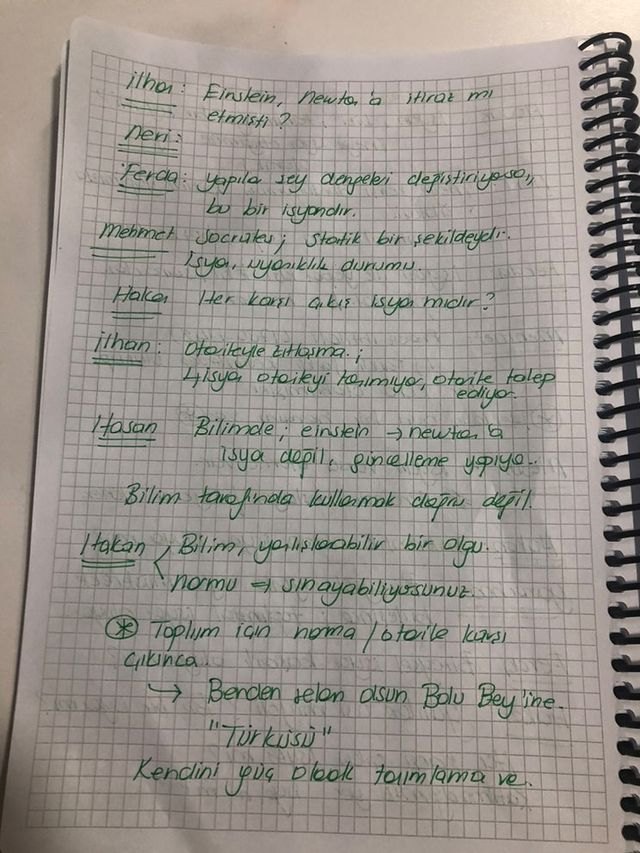 ilhan: Einstein, Newton'a itiraz mı
etmişti?
neri:
Ferda: yapılan şey dengeleri değiştiriyorsa,,
bu bir isyandır.
Mehmet Socrates; statik bir şekildeydi.
İsyan, uyanıklık durumu.
Hakan Her karşı çıkış isyan mıdır?
ilhan: Otoriteyle zıtlaşma.;
↳isyan otoriteyi tanımıyor, otorite talep
ediyor.
Hasan Bilimde; einstein → newton'a
isyan değil, güncelleme yapıyor.
Bilim tarafında kullanmak doğru değil.
Hakan Bilim, yanlışlanabilir bir olgu.
normu ⇒ sınayabiliyorsunuz.
* Toplum için norma / otorite karşı
çıkınca.
↳ Benden selam olsun Bolu Bey'ine.
"Türküsü"
Kendini güç olarak tanımlama ve.